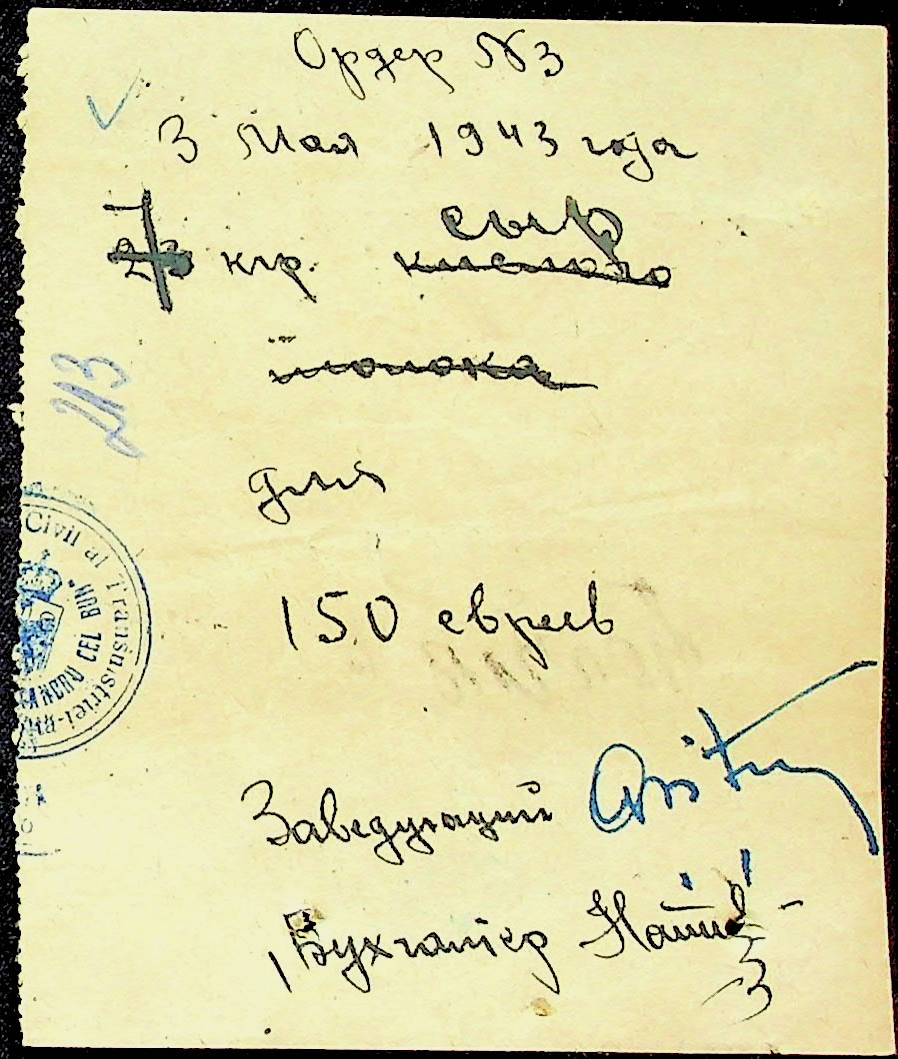 Ордер №3
3 Мая 1943 года
7 кгр. сыр
кислого
молока
213
для
150 евреев
Civil al Transnistriei
CEL BUN"
Заведующий
Бухгалтер